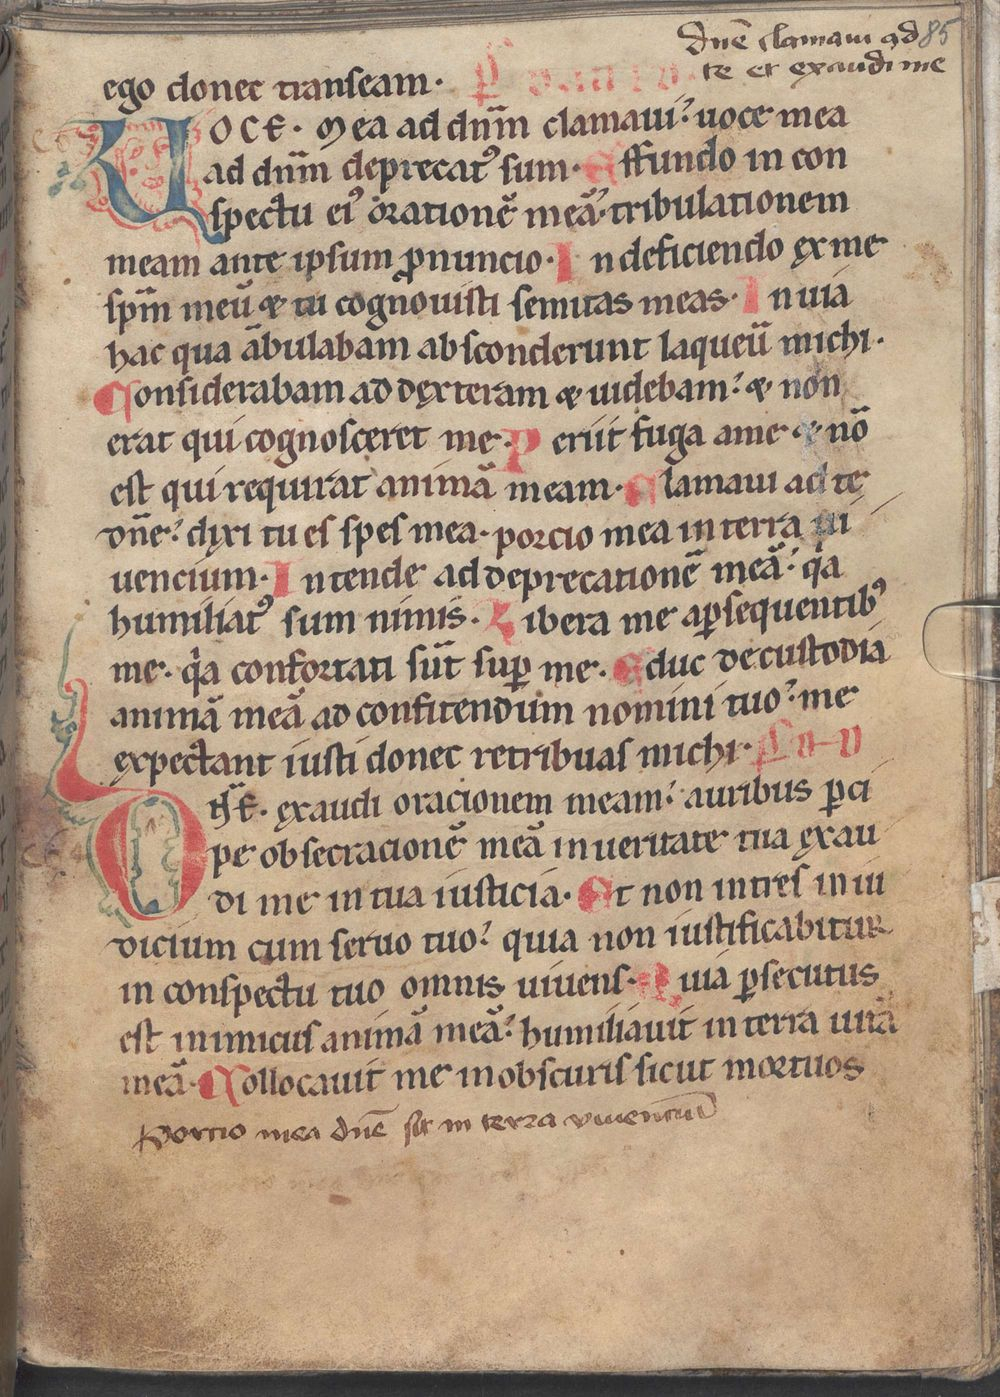 dnē clamaui ad 85
te et exaudi me
ego donec transeam.
VOCE. Mea ad dnm̄ clamaui: uoce mea
ad dnm̄ deprecatꝰ sum. Effundo in con
spectu eiꝰ orationē meā: tribulationem
meam ante ipsum ꝓnuncio. In deficiendo ex me
spm̄ meū & tu cognouisti semitas meas. In uia
hac qua ābulabam absconderunt laqueū michi.
Considerabam ad dexteram & uidebam: & non
erat qui cognosceret me. Periit fuga a me & nō
est qui requirat animā meam. Clamaui ad te
dn̄e: dixi tu es spes mea. porcio mea in terra ui
uencium. Intende ad deprecationē meā: qͥa
humiliatꝰ sum nimis. Libera me a ꝑsequentibꝰ
me. qͥa confortati sūt suꝑ me. Educ de custodia
animā meā ad confitendum nomini tuo: me
expectant iusti donec retribuas michi.
DN̄E. exaudi oracionem meam: auribus ꝑci
pe obsecracionē meā in ueritate tua exau
di me in tua iusticia. Et non intres in iu
dicium cum seruo tuo: quia non iustificabitur
in conspectu tuo omnis uiuens. Quia ꝑsecutus
est inimicus animā meā: humiliauit in terra uitā
meā. Collocauit me in obscuris sicut mortuos
Portio mea dnē sit in terra viuentiū